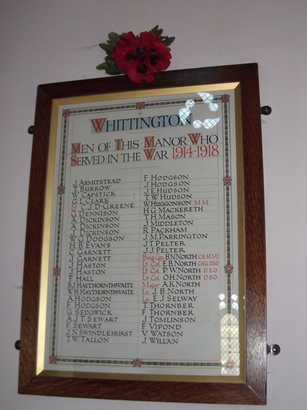 WHITTINGTON
MEN OF THIS MANOR WHO
SERVED IN THE WAR 1914-1918
J ARMITSTEAD
T BURROW
W CAPSTICK
G L CLARK
C J D GREENE
G DENNISON
A DICKINSON
A DICKINSON
A DICKINSON
W G DODGSON
H B EVANS
C GARNETT
J GARNETT
J HASTON
J HASTON
F HALL
B J HAYTHORNTHWAITE
V H HAYTHORNTHWAITE
A HODGSON
F HODGSON
G SEDGWICK
A J T SEWART
F SEWART
J N SWINDLEHURST
T W TALLON
F HODGSON
J HODGSON
J E HUDSON
T W HUDSON
W HUGGONSON M M
H G MACKERETH
T H MASON
A MIDDLETON
R PACKHAM
J M PARRINGTON
J T PELTER
J J PELTER
NORTH
Lt Col E B NORTH
Lt Col P W NORTH D S O
Lt Col O H NORTH D S O
Major A K NORTH
Lt J B NORTH
Lt E J SELWAY
T THORNBER
F THORNBER
J TOMLINSON
F VIPOND
V WATSON
J WILLAN